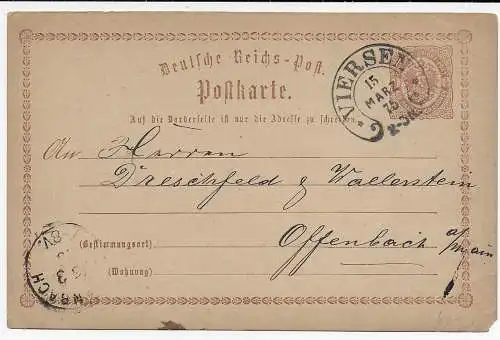 Deutsche Reichs-Post.
Postkarte.
VIERSEN
15
MARZ
75
2-3N
Auf die Vorderseite ist nur die Adresse zu schreiben.
An Herren
Dreschfeld & Wallerstein
(Bestimmungsort)
Offenbach a/Main
(Wohnung)